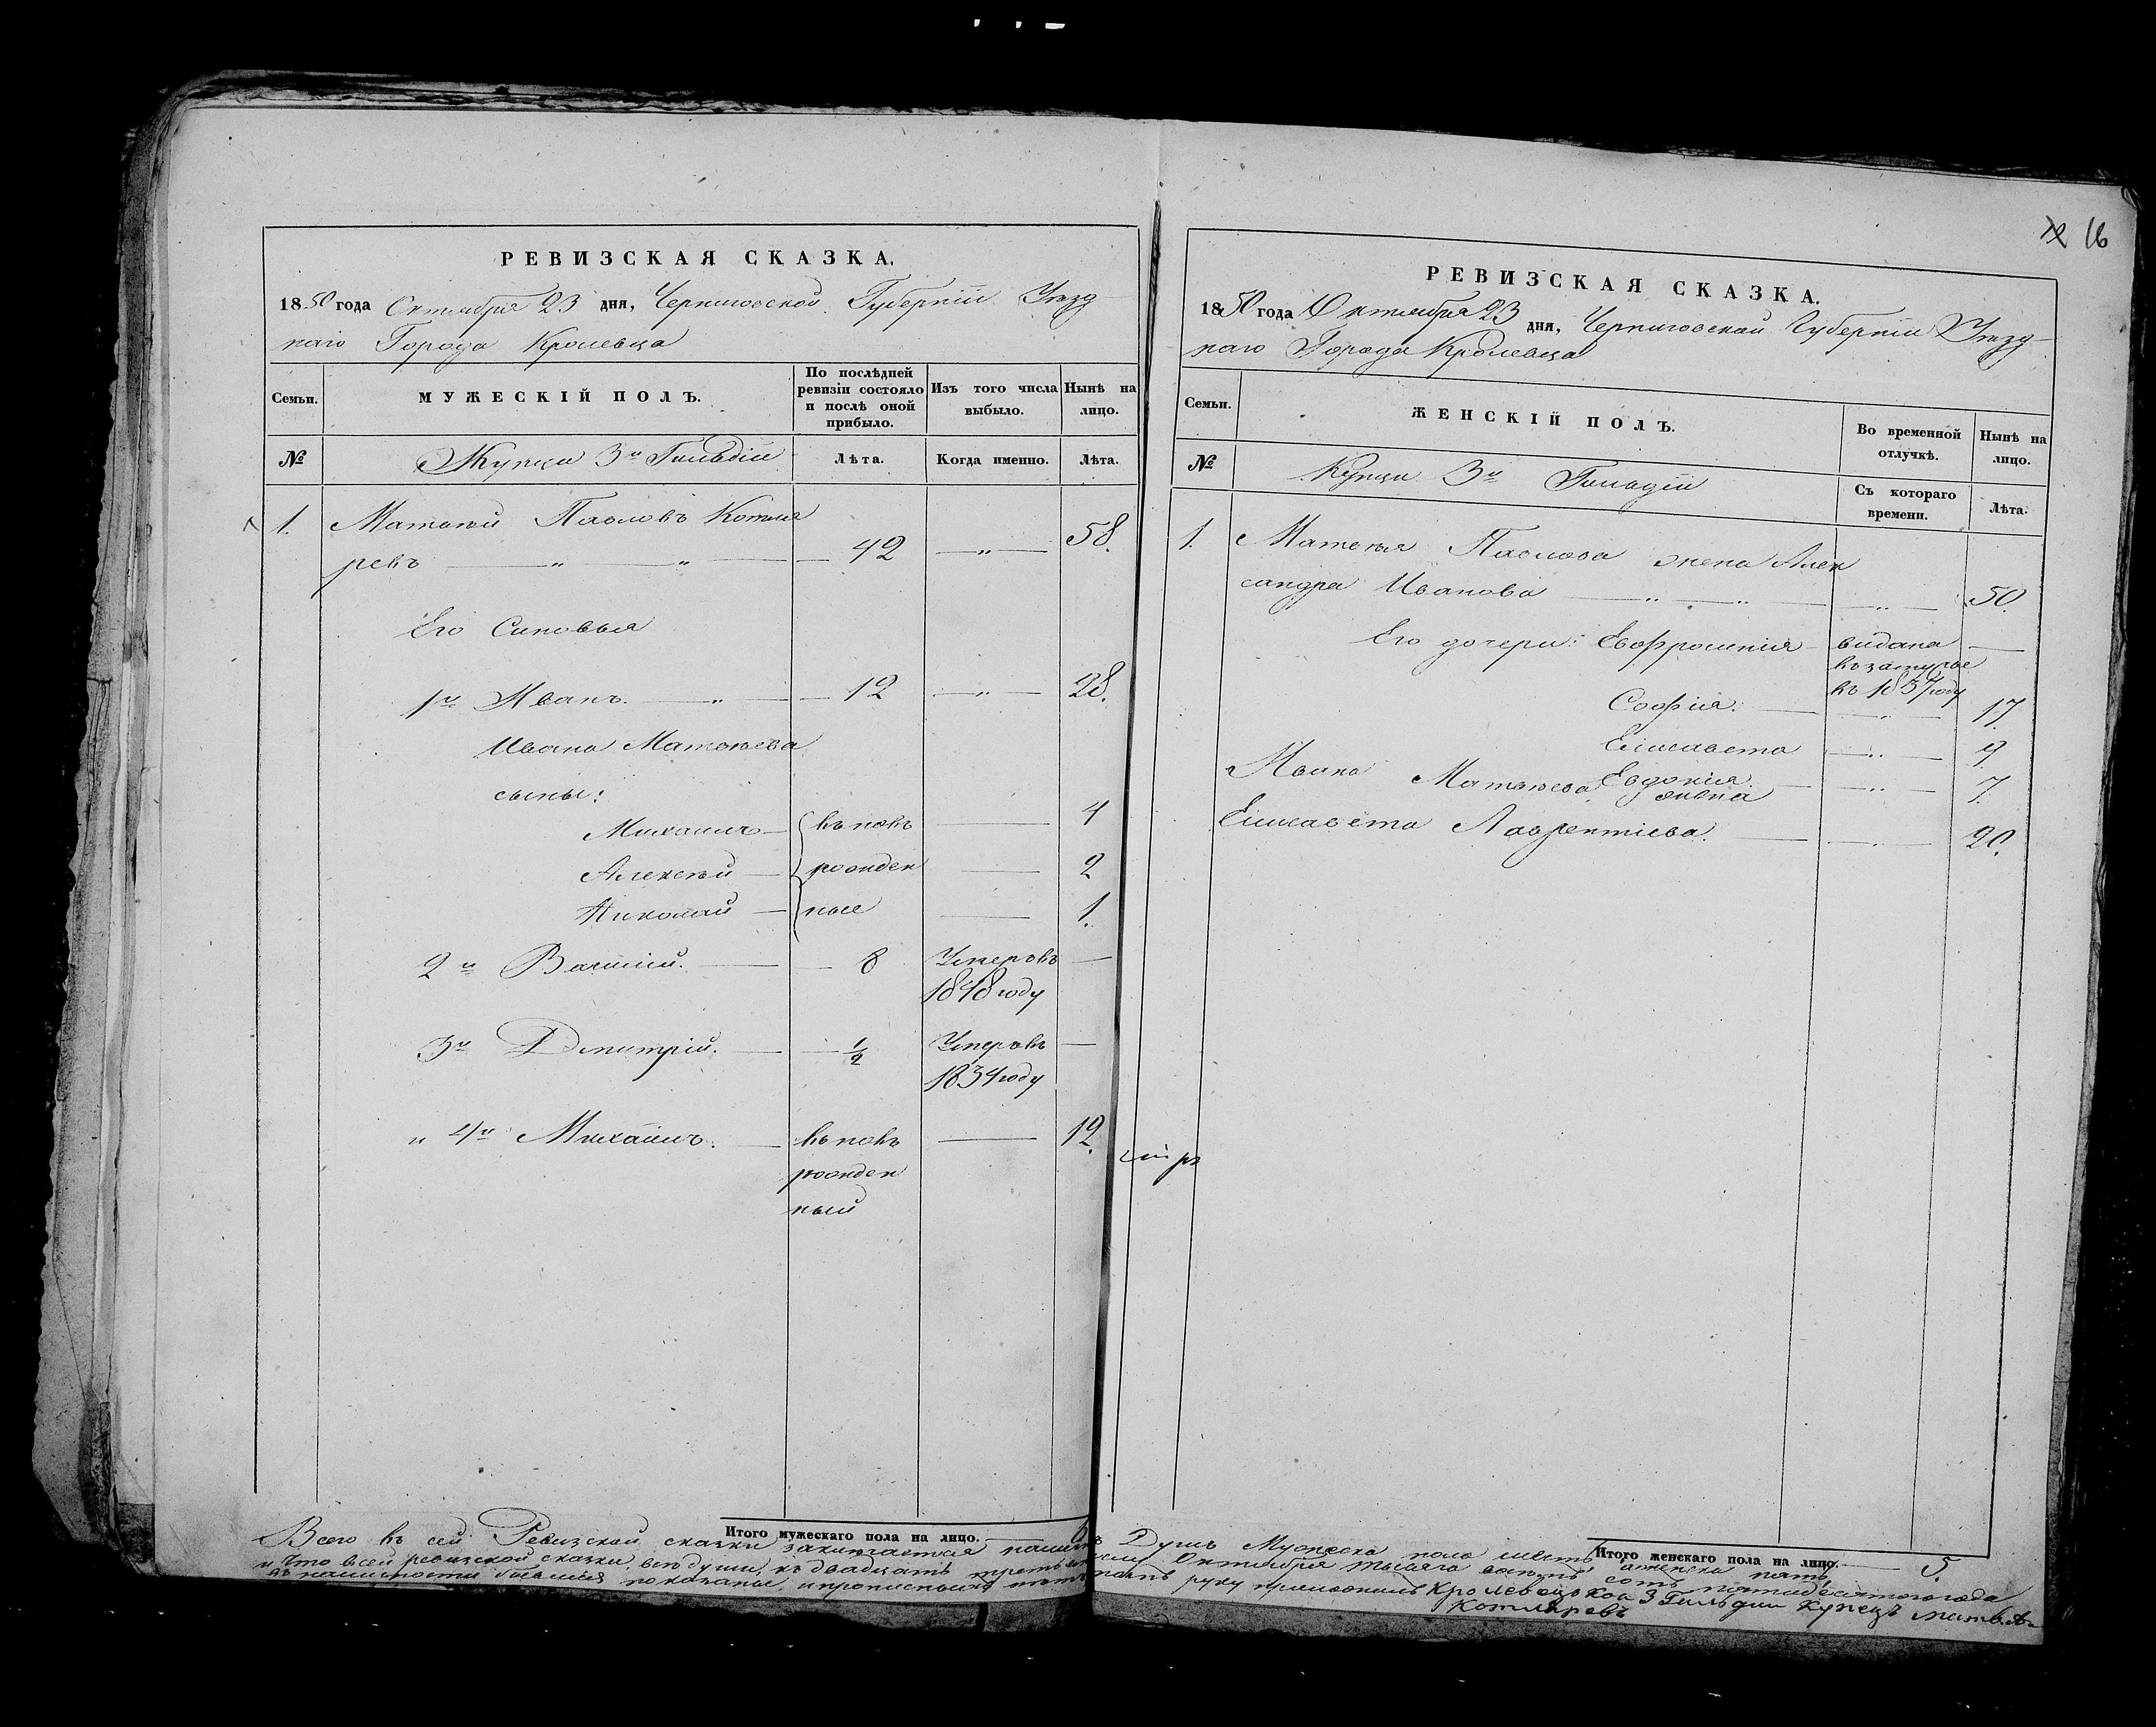 РЕВИЗСКАЯ СКАЗКА.
1850 года Октября 23 дня, Черниговской Губерніи Уѣзд
наго Города Кролевца
Семьи.
МУЖЕСКІЙ ПОЛЪ.
По послѣдней ревизіи состояло и послѣ оной прибыло.
Изъ того числа выбыло.
Нынѣ на лицо.
№
Купцы 3й Гильдіи
Лѣта.
Когда именно.
Лѣта.
1. Матвѣй Павловъ Котля
ревъ — " — " — 42 — " — 58.
Его Синовья
1й Иванъ. — " — 12 — " — 28.
Ивана Матвѣева
сыны:
Михаилъ — вновь — 4
Алексѣй — рожден — 2
Николай — ные — 1.
2й Василий. — 8 Умеръ въ —
1848 году
3й Дмитрій. — 1/2 Умеръ въ —
1834 году
" 4й Михаилъ. — вновь — 12.
рожден
ный
Итого мужескаго пола на лицо. — 6
16
РЕВИЗСКАЯ СКАЗКА.
1850 года Октября 23 дня, Черниговской Губерніи Уѣзд-
наго Города Кролевца
Семьи.
ЖЕНСКІЙ ПОЛЪ.
Во временной отлучкѣ.
Нынѣ на лицо.
№
Купцы 3й Гильдіи
Съ котораго времени.
Лѣта.
1. Матвѣя Павлова жена Алек
сандра Иванова — " — " — " — 50.
Его дочери: Евфросинія — видана —
въ замужье
въ 1837 году
Софія. — " — 17.
Елисавета — " — 9
Евдокія — " — 7.
Ивана Матвѣева жена
Елисавета Лаврентіева. — " — 20.
Итого женскаго пола на лицо. — 5.
Всего въ сей Ревизской сказки заключается Душъ Мужеска пола шесть а женска пять
и что всей ревизской сказки всѣ души, къ двадцать третьему Октября тысяча восемь сотъ пятидесятого года
въ наличности показаны, и прописных нетъ руку приложилъ Кролевецькой 3 Гильдии Купецъ
Котляревъ